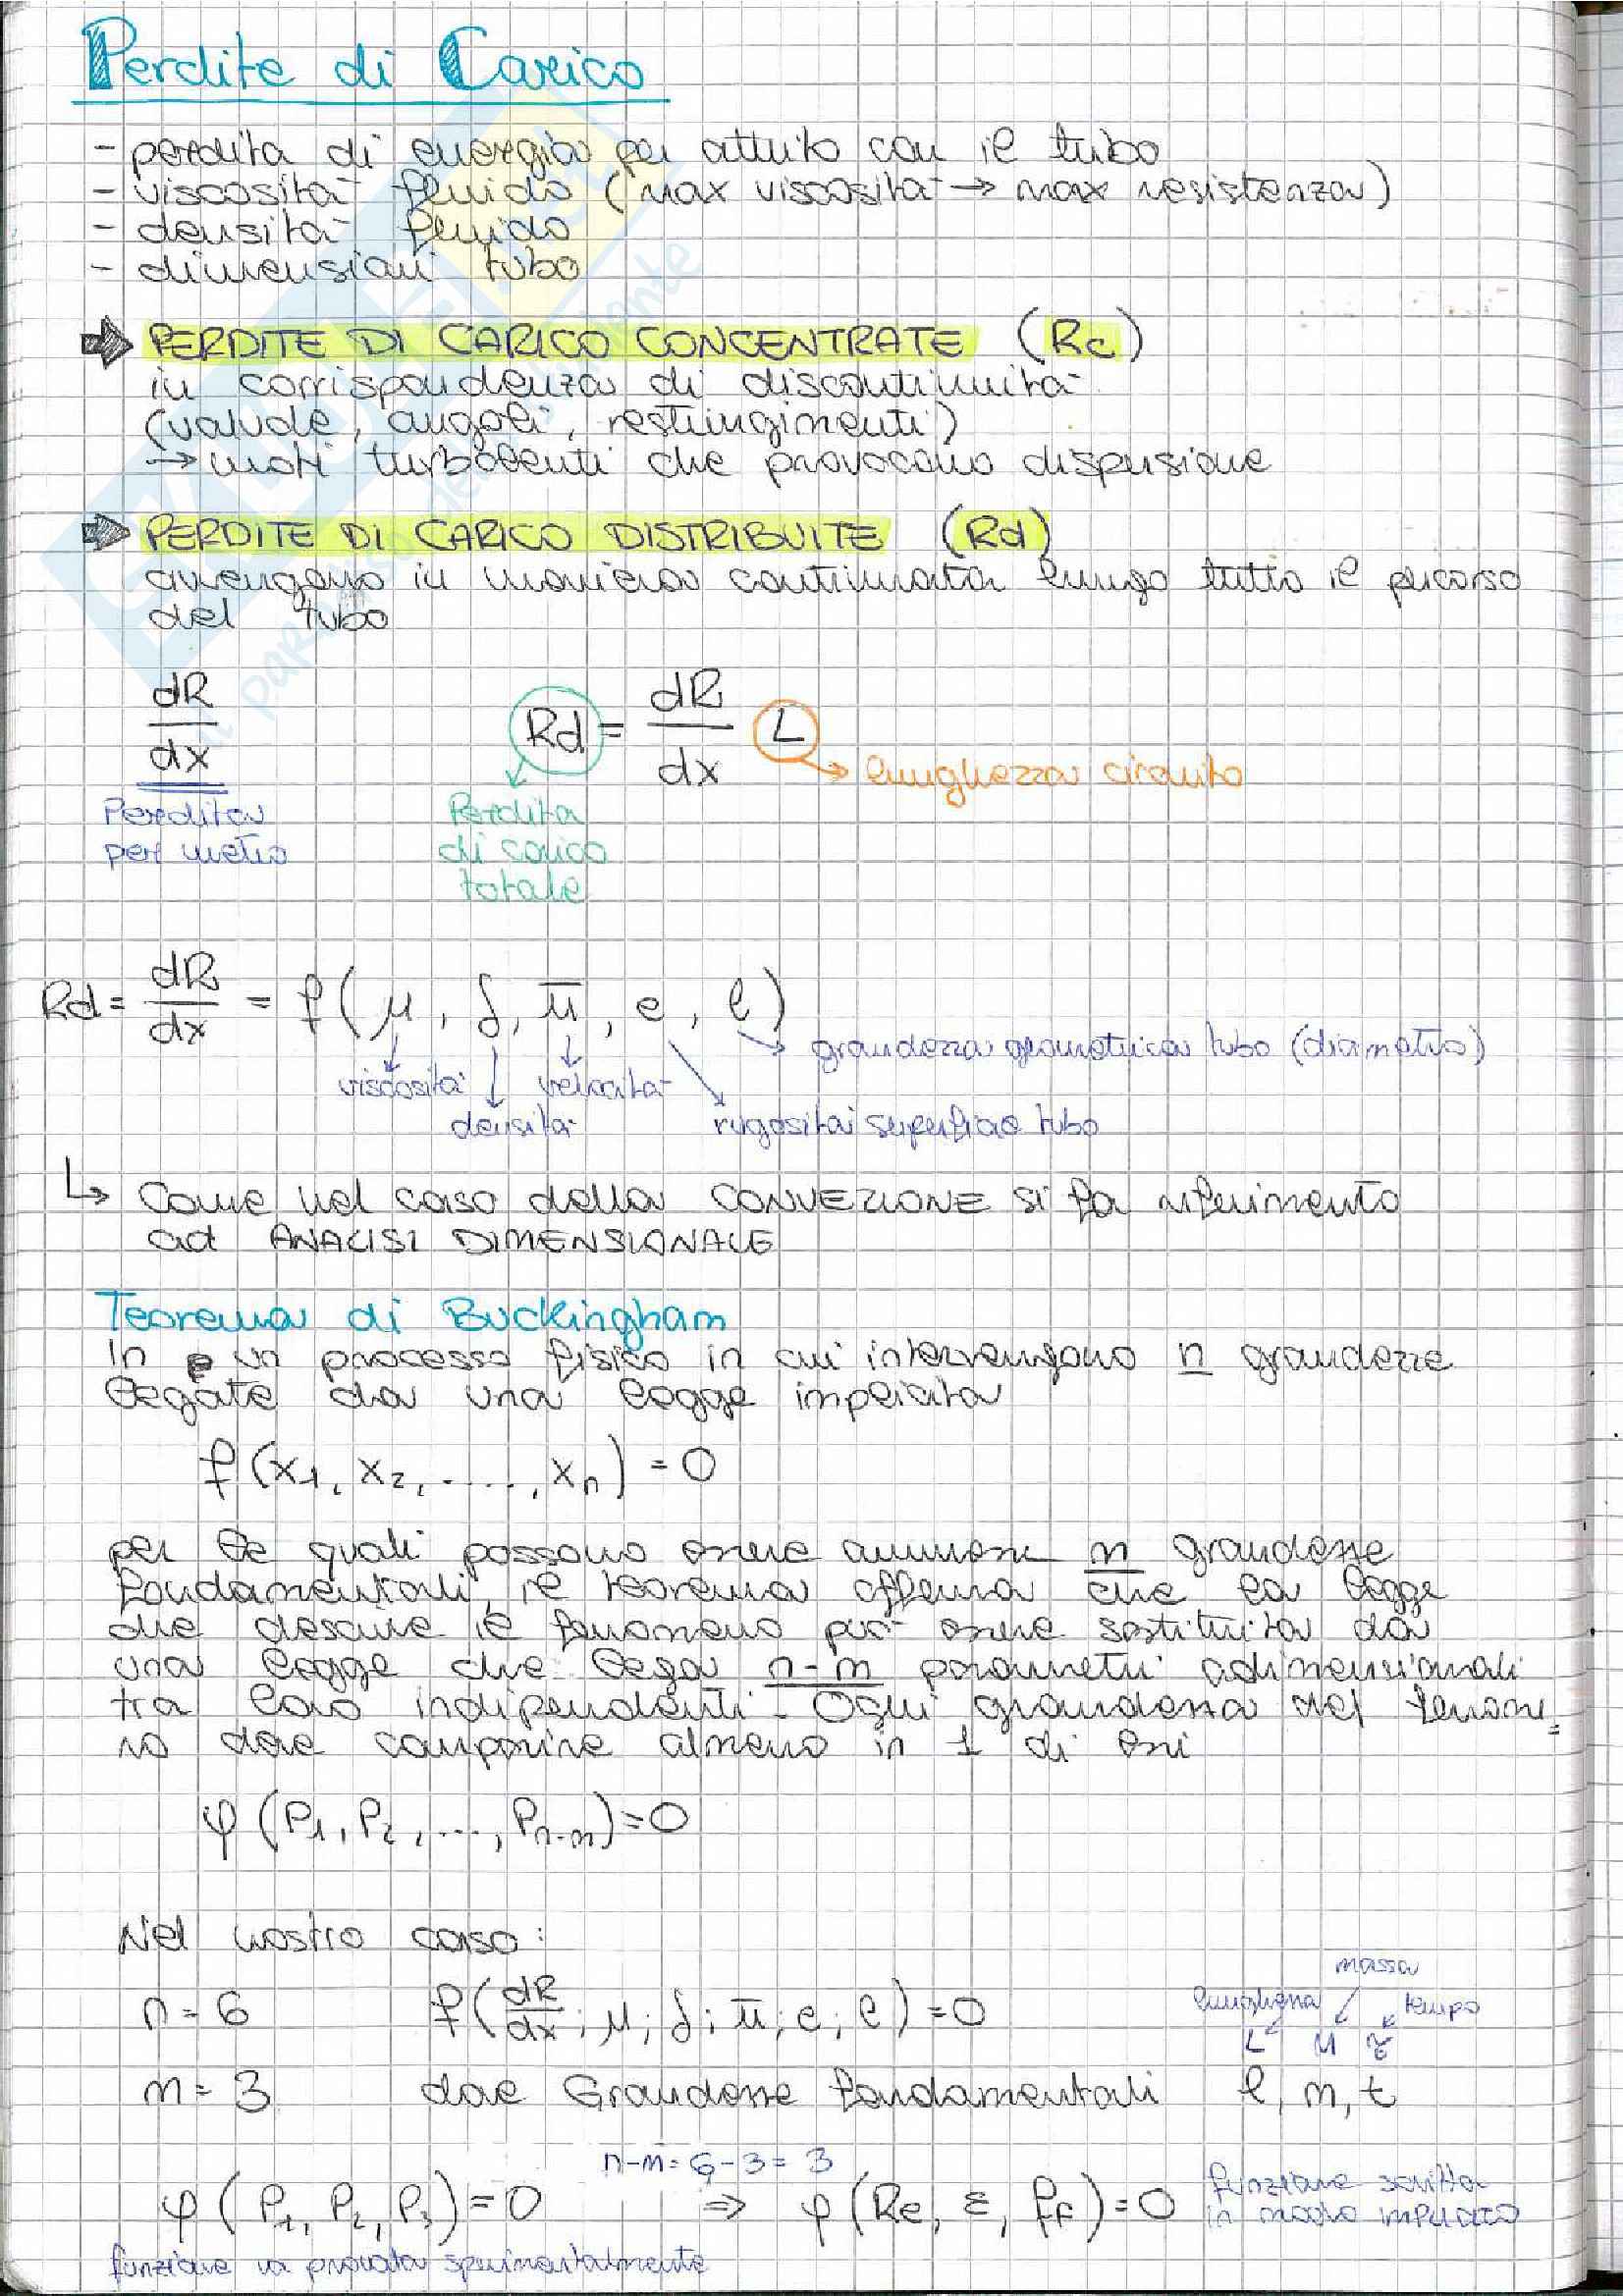 Perdite di Carico
- perdita di energia per attrito con il tubo
- viscosità fluido (max viscosità → max resistenza)
- densità fluido
- dimensioni tubo
⇒ PERDITE DI CARICO CONCENTRATE (Rc)
in corrispondenza di discontinuità
(valvole, angoli, restringimenti)
→ moti turbolenti che provocano dispersione
⇒ PERDITE DI CARICO DISTRIBUITE (Rd)
avvengono in maniera continuata lungo tutto il percorso
del tubo
dR/dx Rd = dR/dx L → lunghezza circuito
Perdita per metro
Perdita di carico totale
Rd = dR/dx = f(μ, δ, ū, e, l)
grandezza geometrica tubo (diametro)
viscosità velocità
densità rugosità superficie tubo
↳ Come nel caso della CONVEZIONE si fa riferimento
ad ANALISI DIMENSIONALE
Teorema di Buckingham
In un processo fisico in cui intervengono n grandezze
legate da una legge implicita
f(x1, x2, ...., xn) = 0
per le quali possono essere assunte m grandezze
fondamentali, il teorema afferma che la legge
che descrive il fenomeno può essere sostituita da
una legge che lega n-m parametri adimensionali
tra loro indipendenti. Ogni grandezza del fenome=
no deve comparire almeno in 1 di essi
φ(P1, P2, ..., Pn-m) = 0
Nel nostro caso:
massa
n = 6 f(dR/dx; μ; δ; ū; e; l) = 0 lunghezza tempo
L M
m = 3 dove Grandezze fondamentali l, m, t
n-m = 6-3 = 3
φ(P1, P2, P3) = 0 ⇒ φ(Re, ε, fF) = 0 funzione scritta
in modo implicito
funzione va provata sperimentalmente